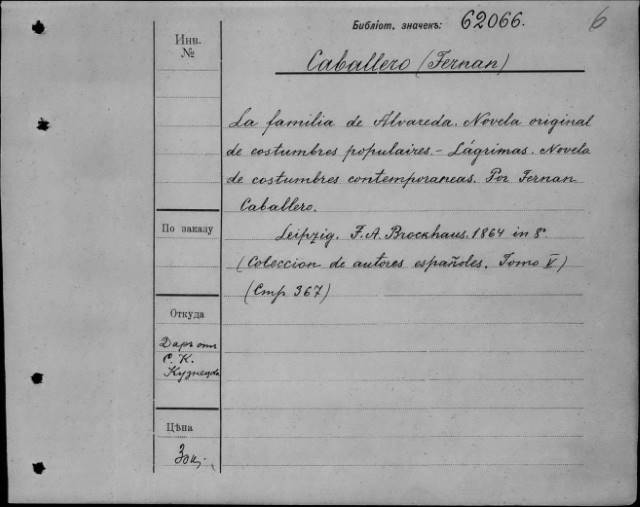 Библіот. значекъ: 62066.
6
Инв.
№
Caballero (Fernan)
La familia de Alvareda. Novela original
de costumbres populaires. - Lágrimas. Novela
de costumbres contemporaneas. Por Fernan
Caballero.
По заказу
Leipzig. F. A. Brockhaus. 1864 in 8º
(Coleccion de autores españoles. Tomo V)
(Стр 367)
Откуда
Даръ отъ
С. К.
Кузнецова
Цѣна
30к.